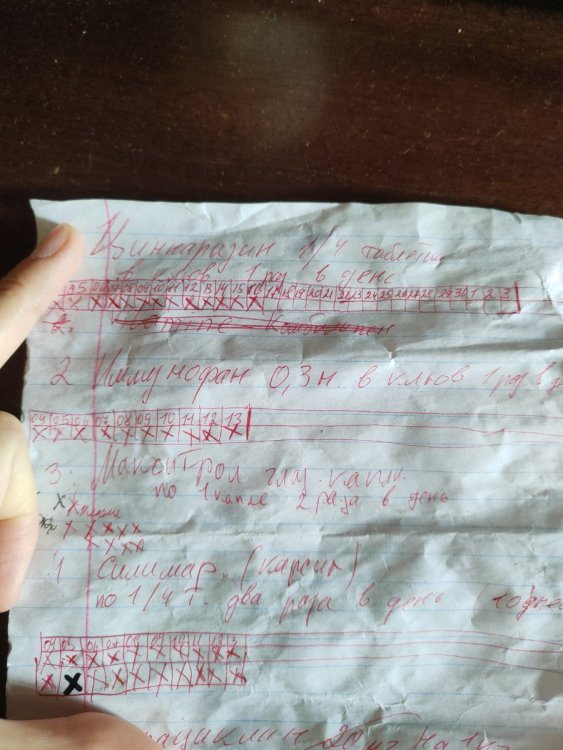 Циннаризин 1/4 таблетки
в клюв 1 раз в день
05 06 07 08 09 10 11 12 13 14 15 16 17 18 19 20 21 22 23 24 25 26 27 28 29 30 1 2 3
2 Иммунофан 0,3 н. в клюв 1 раз в
04 05 06 07 08 09 10 11 12 13
3. Макситрол глаз. капли.
по 1 капле 2 раза в день
1 Силимар. (карсил)
по 1/4 т. два раза в день (10 дней
04 05 06 07 08 09 10 11 12 13